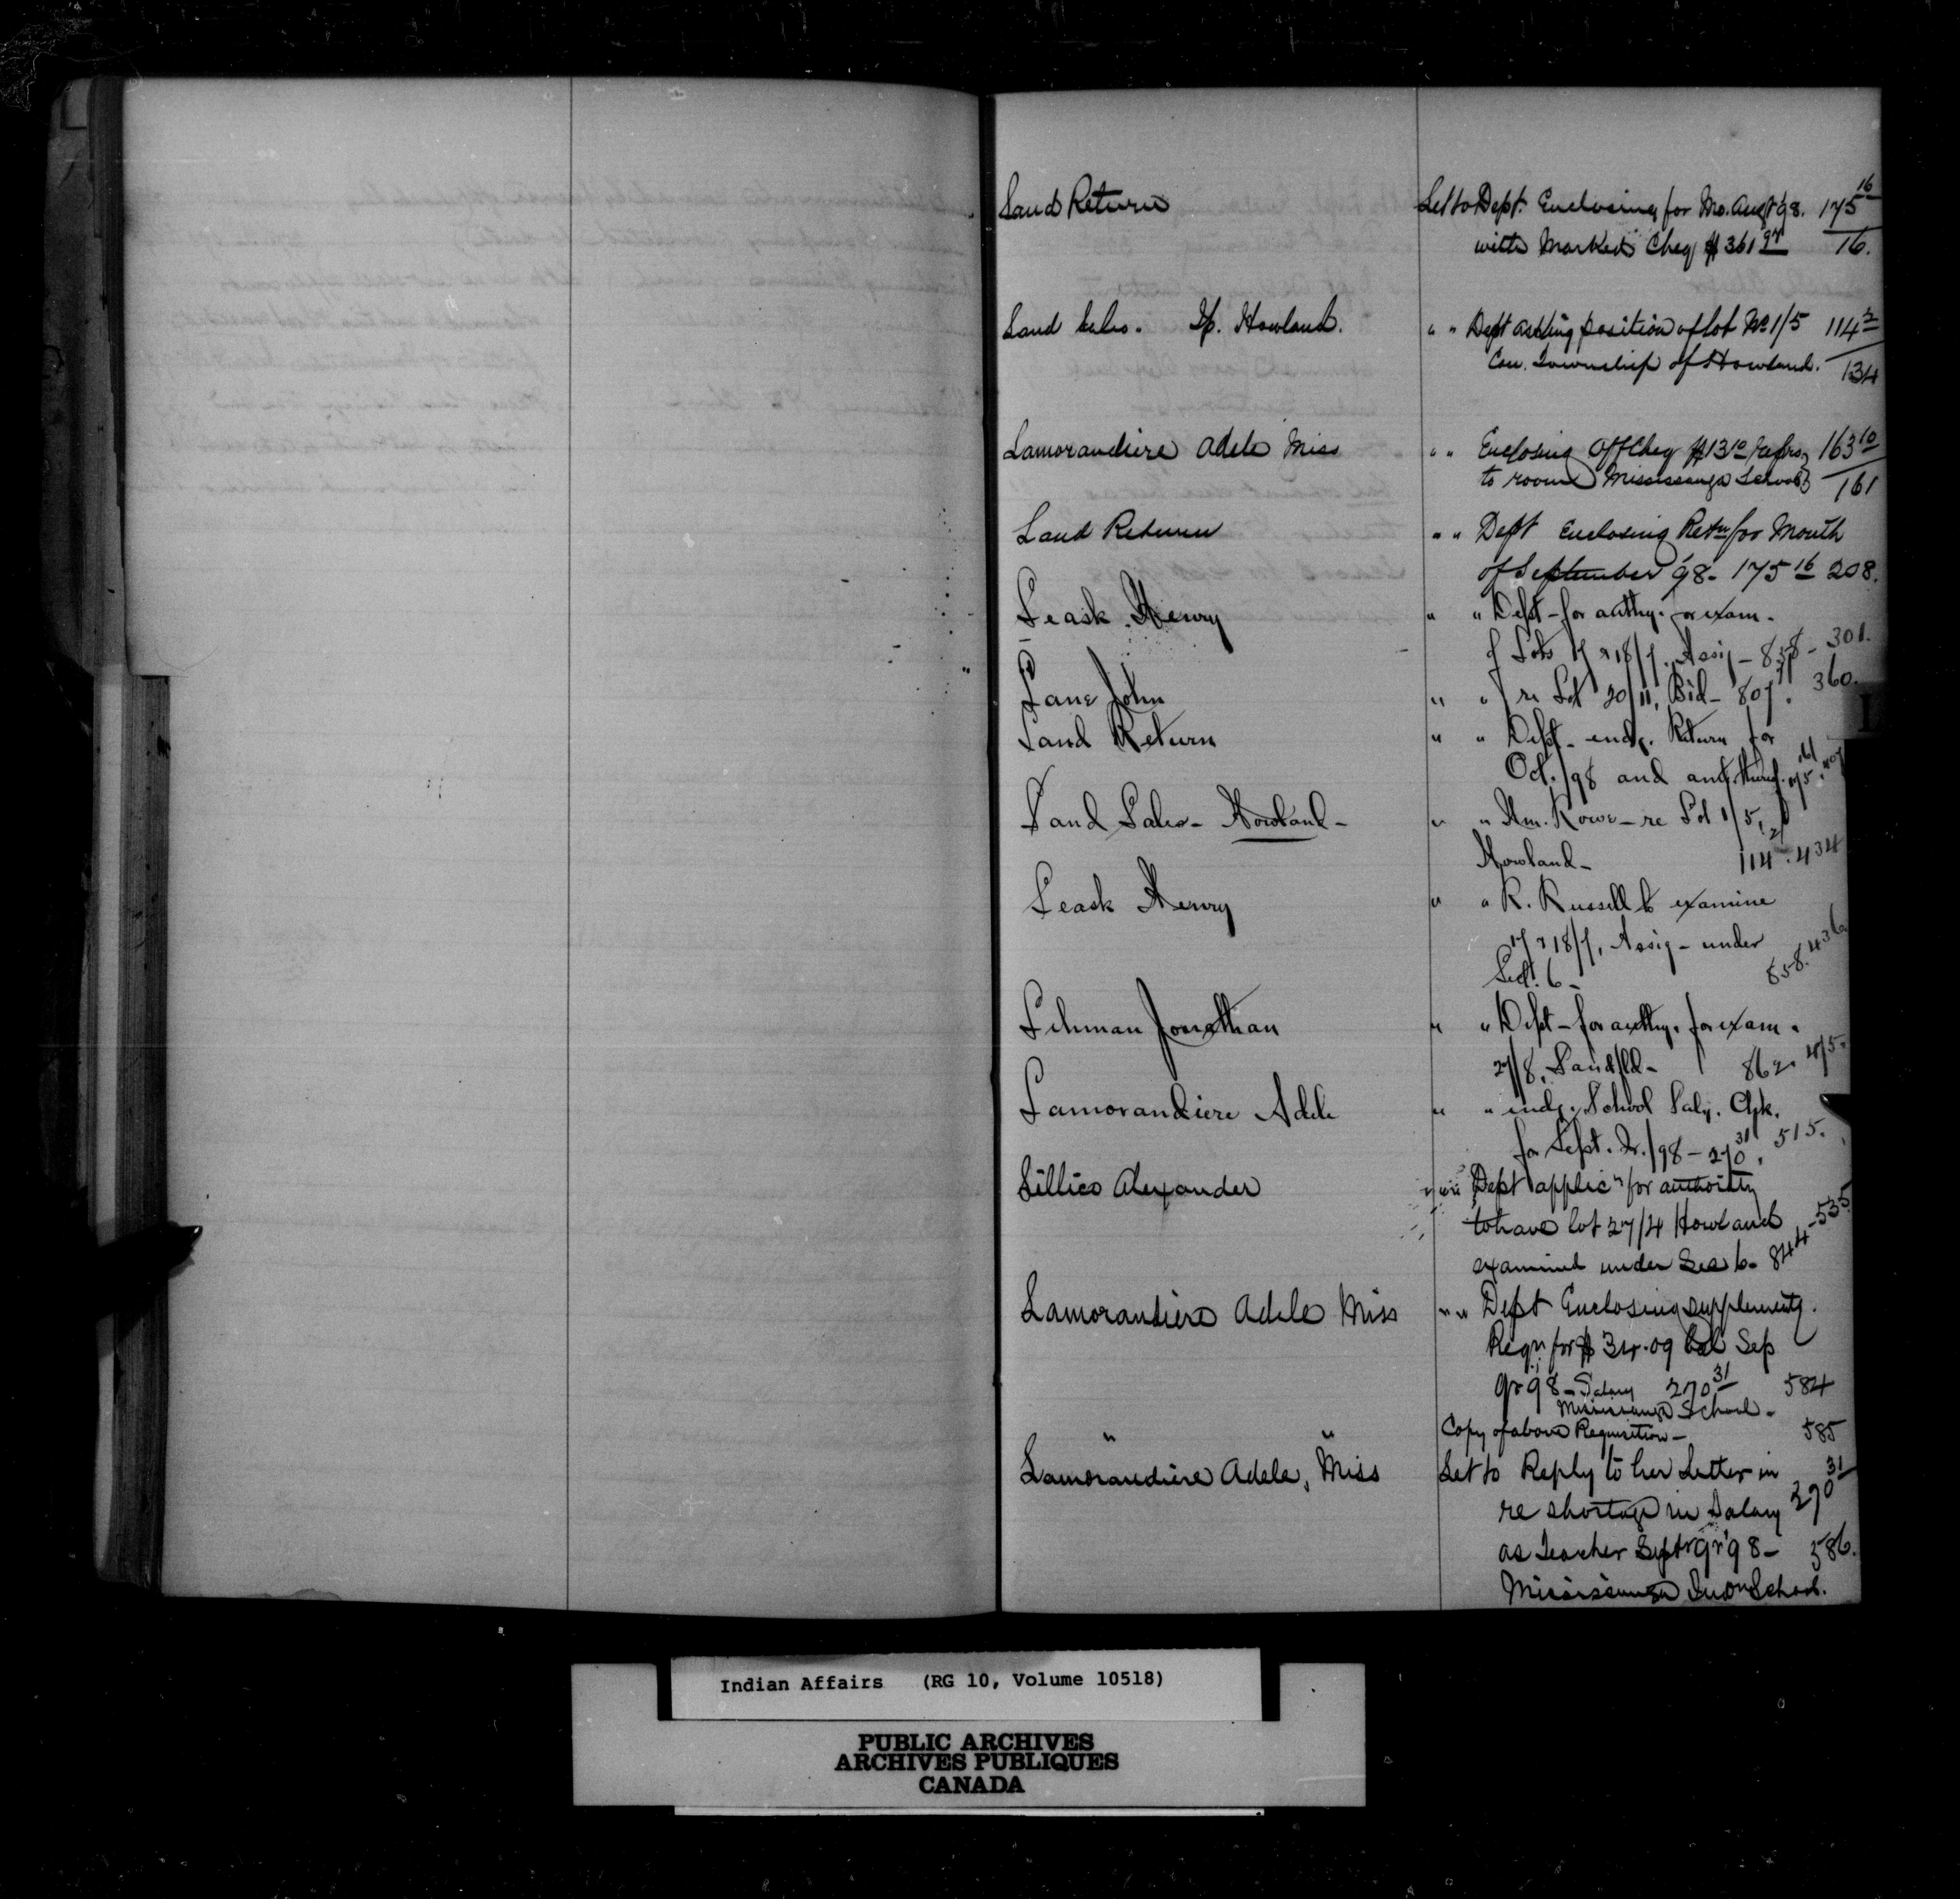 Land Return Let to Dept. Enclosing for Mo. Augt 98. 175 16
with Marked Cheq $361 97 16.
Land Sales. Tp. Howland. " " Dept asking position of lot No 1/5 114 2
Con. Township of Howland. 134
Lamorandiere Adele Miss " " Enclosing Off Cheq $13 10 163 10
to room Mississauga School 161
Land Return " " Dept Enclosing Retn for Month
of September 98 - 175 16 208.
Leask Henry " " Dept - for authy. for exam.
of Lots 17 & 18/7, Assig - 858 - 301.
Lane John " " re Lot 20/11, Bid - 807. 360.
Land Return " " Dept - encl. Return for
Oct. /98 and
Land Sales - Howland - " " Wm. Rowe - re Lot 1/5,
Howland - 114 2 . 434
Leask Henry " " R. Russell to examine
17 & 18/7, Assig - under
Sect. 6 - 858. 436
Lehman Jonathan " " Dept - for authy. for exam.
27/8, Sandfld - 862. 475.
Lamorandiere Adele " " encl. School Saly. Chk.
for Sept. Qr. /98 - 270 31, 515.
Lillico Alexander " " Dept applicn for authority
to have lot 27/4 Howland
examined under Sec 6 - 844 - 535
Lamorandiere Adele Miss " " Dept Enclosing supplementy.
Reqn for $34.09 bal Sep
qr 98 - Salary 270 31 584
Mississauga School -
" " Copy of above Requisition - 585
Lamorandiere Adele, Miss Let to Reply to her Letter in
re shortage in Salary 270 31
as Teacher Septr qr 98 - 586.
Mississauga Indn School.
L
Indian Affairs (RG 10, Volume 10518)
PUBLIC ARCHIVES
ARCHIVES PUBLIQUES
CANADA